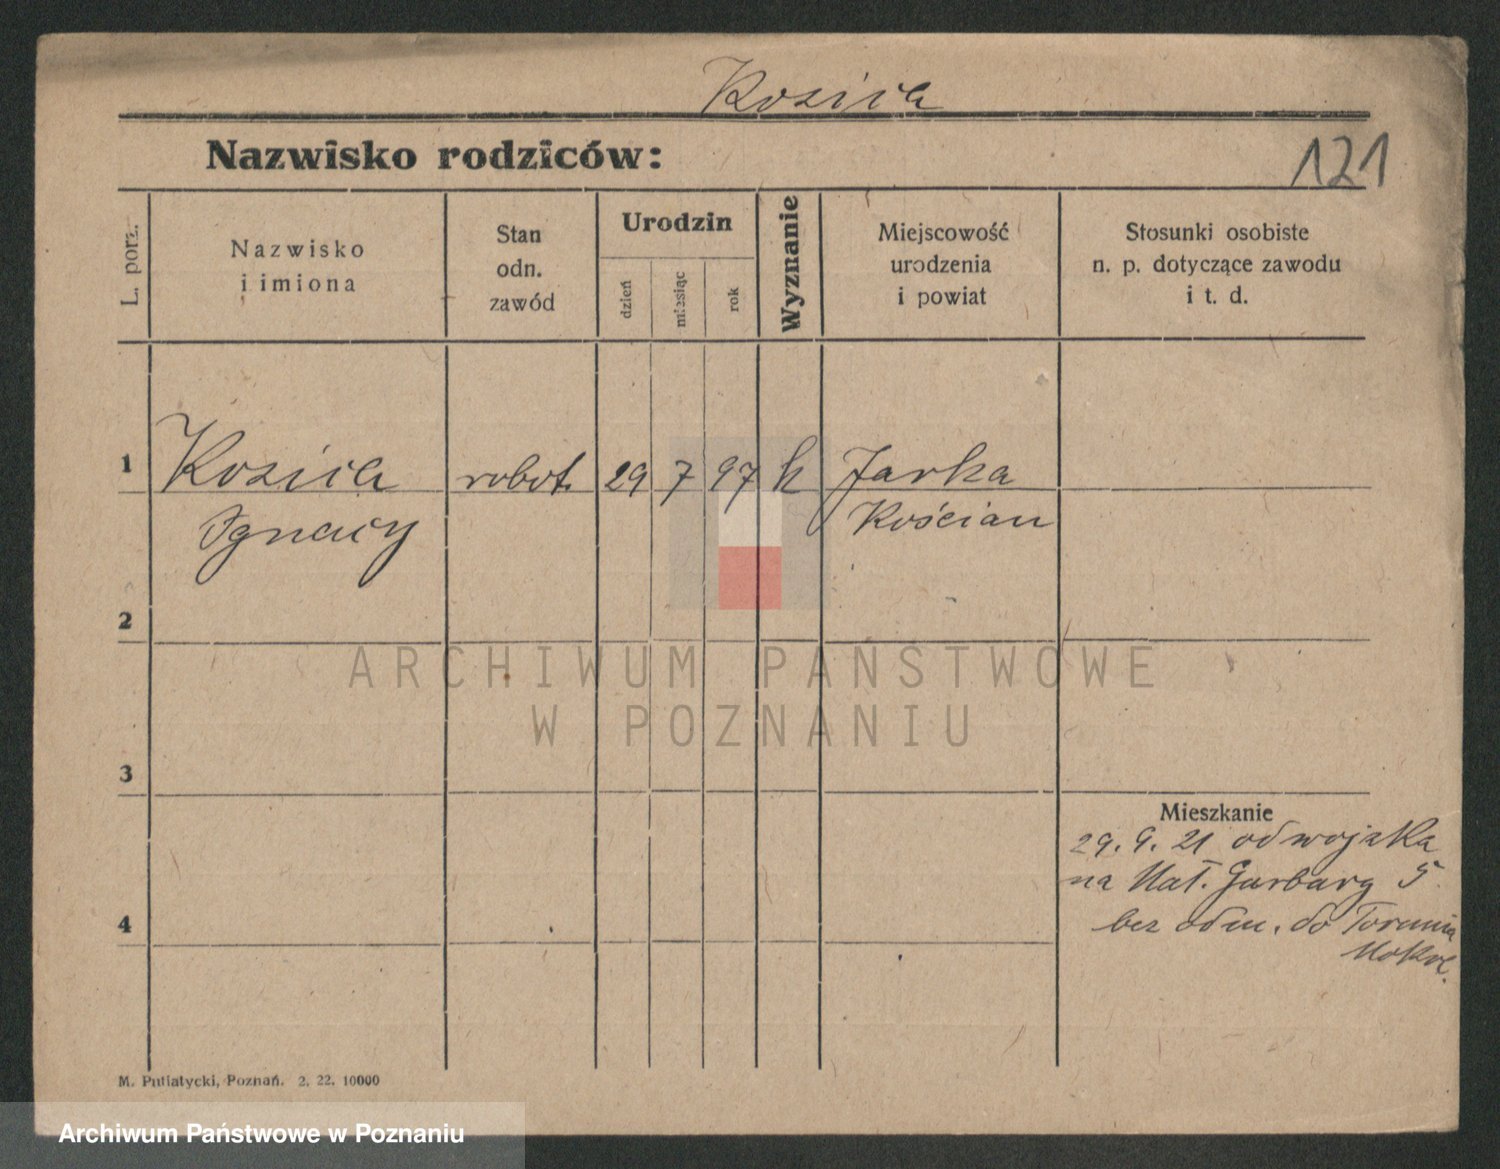 Kozica
Nazwisko rodziców:
121
L. porz.
Nazwisko
i imiona
Stan
odn.
zawód
Urodzin
dzień
miesiąc
rok
Wyznanie
Miejscowość
urodzenia
i powiat
Stosunki osobiste
n. p. dotyczące zawodu
i t. d.
1
Kozica robot. 29 7 97 k Jarka
Ignacy Kościan
2
ARCHIWUM PAŃSTWOWE
W POZNANIU
3
Mieszkanie
29. 9. 21 od wojska
na Mał. Garbary 5
4
bez odm. do Torunia
Mokre.
M. Putiatycki, Poznań. 2. 22. 10000
Archiwum Państwowe w Poznaniu